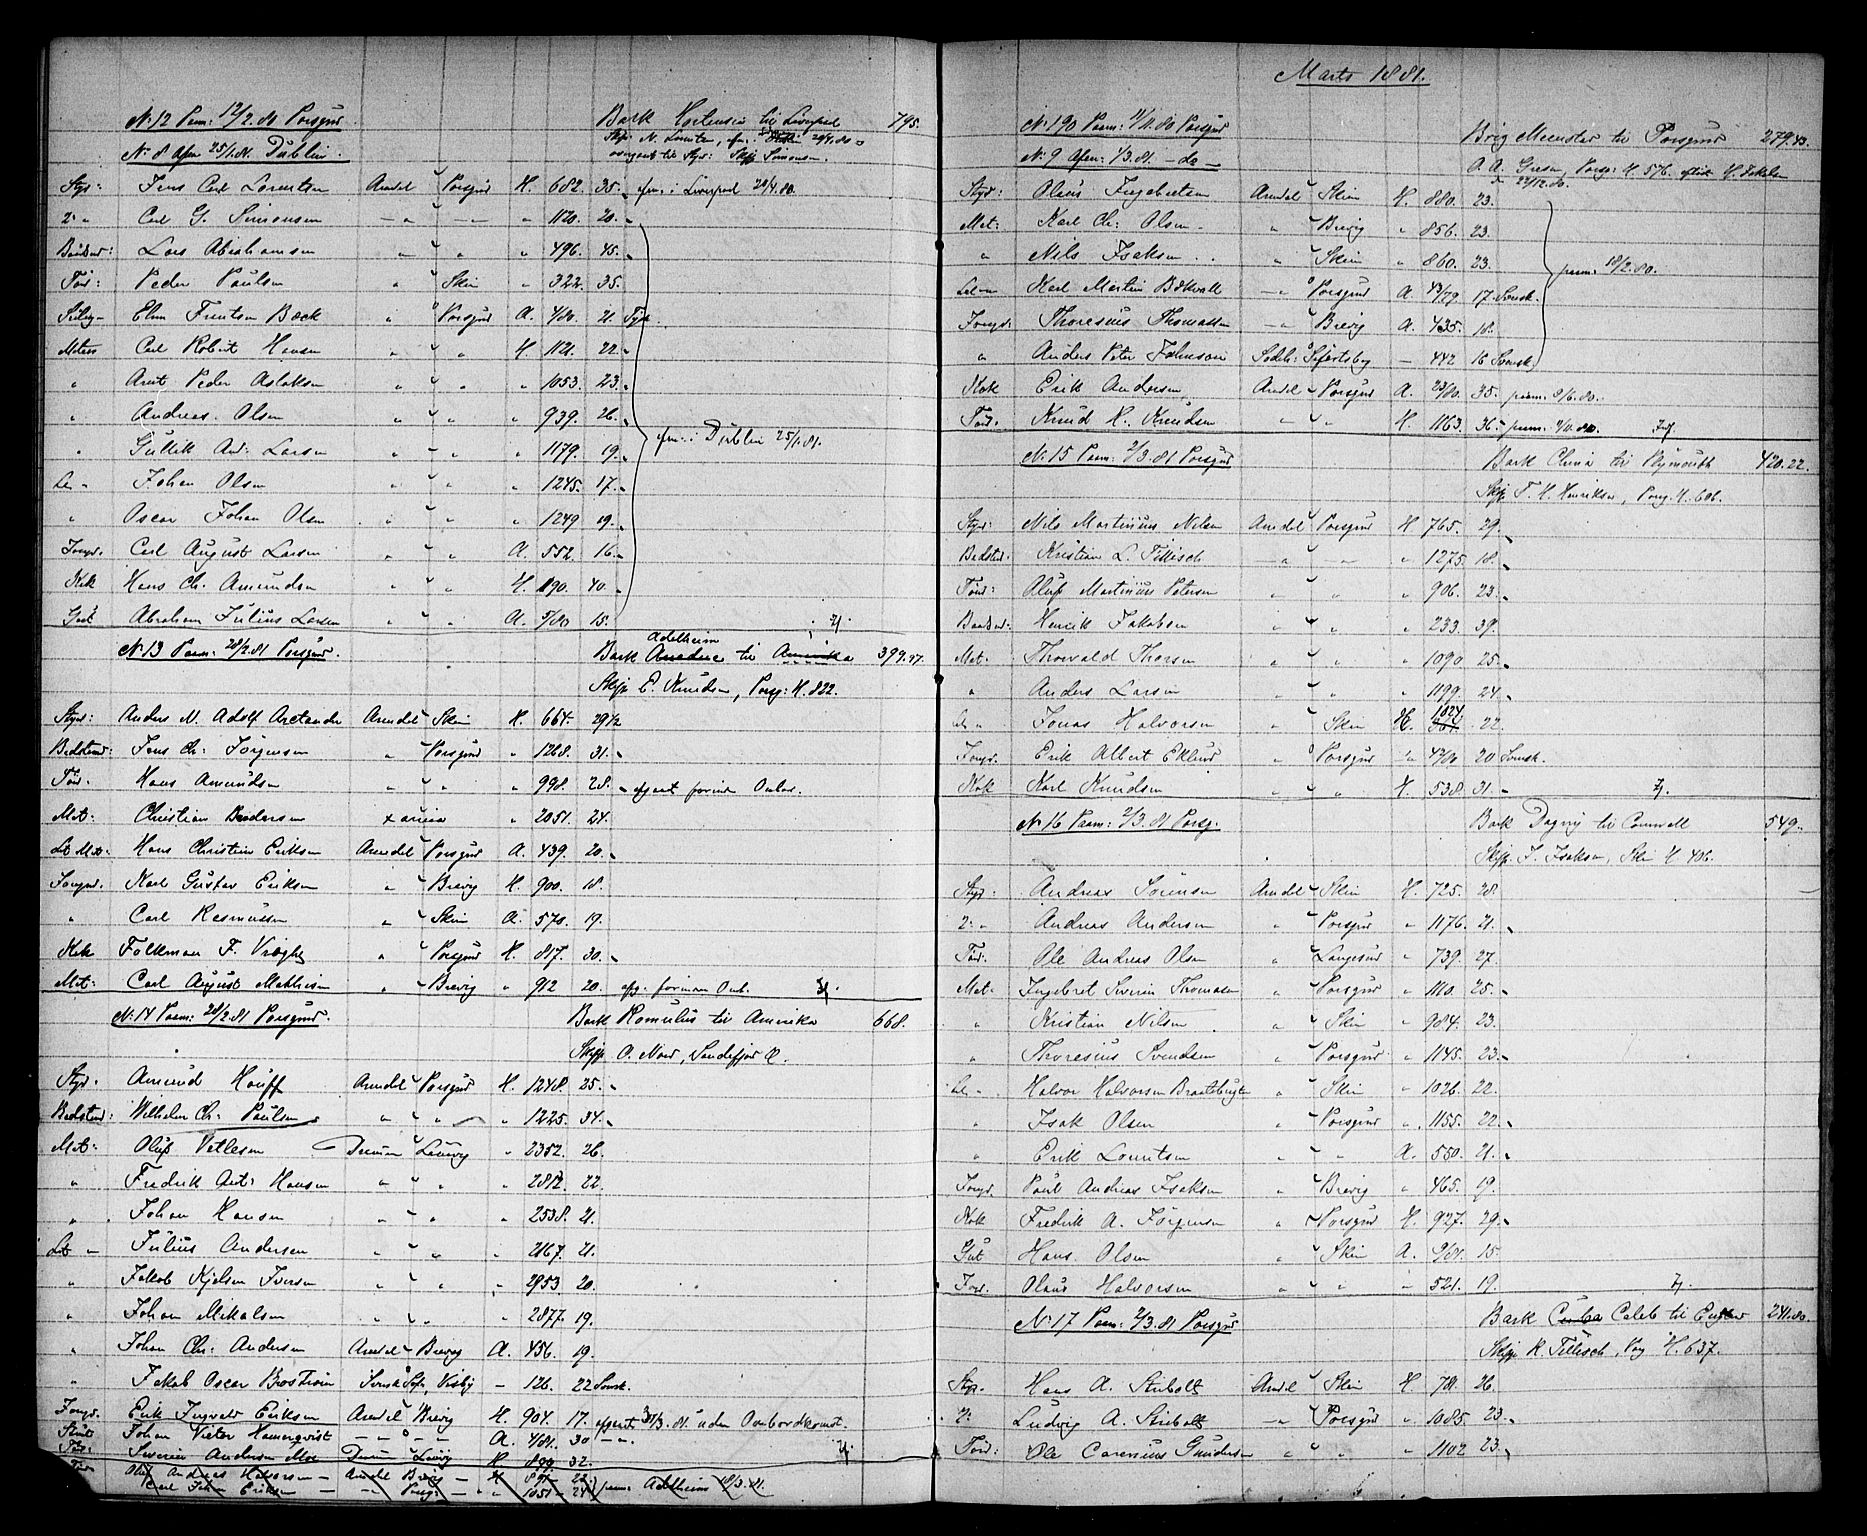 N: 12 Paam: 12/2.81 Porsgrund.
Bark Hortensia til Liverpool 745.
N: 8 Afm 25/1.81. Dublin.
Styr: Jens Carl Lorentsen Arendal Porsgrund H. 682. 35. afm. i Liverpool 20/4.80.
2: " Carl G. Simonsen — " — — " — " 1120. 20.
Baadsm: Lars Abrahamsen " " " 496. 45.
Tøm: Peder Paulsen " Skien " 322. 35.
Seilm — Elim Frantsen Bæck " Porsgrund A. 4/80. 21. Tysk.
Matros Carl Robert Hansen " " H. 1121. 22.
" Arnt Peder Aslaksen " " " 1053. 23.
" Andreas Olsen " " " 939. 26.
afm. i Dublin 25/1.81.
" Gullik And. Larsen " " " 1179. 19.
Let " Johan Olsen " " " 1245. 17.
" Oscar Johan Olsen " " " 1249 19.
Jungm. Carl August Larsen " " A. 552. 16.
Kok Hans Ch. Amundsen " " H. 1190. 40.
Gut Abraham Julius Larsen " " A. 5/80 15.
N: 13 Paam: 20/2.81 Porsgrund.
Bark Adelheim til Amerika 399.97.
Skip. E. Knudsen, Porsg. H. 822.
Styrm: Anders N. Adolf Arctander Arendal Skien H. 664. 29 1/2
Bedstmd: Jens Ch: Jørgensen " Porsgrund " 1268. 31.
Tøm. Hans Amundsen " " " 998. 28. afgaaet forinden Ombor.
Mat: Christian Brodersen " 2051. 24.
Let Mat: Hans Christian Eriksen Arendal Porsgrund A. 439. 20.
Jungm. Karl Gustav Eriksen " Brevig H. 900. 18.
" Carl Rasmussen " Skien A. 570. 19.
Kok Folkman F. " Porsgrund H. 817. 30.
Mat: Carl August Mathisen " Brevig " 912 20. afg. forinden Omb.
N: 14 Paam: 20/2.81 Porsgrund.
Bark Romulus til Amerika 668.
Skip. O. Moe, Sandefjord H.
Styr. Amund Houff Arendal Porsgrund H. 1248. 25.
Bedstmd: Wilhelm Ch: Paulsen " " " 1225. 34.
Mat: Oluf Vetlesen Drammen Laurvig " 2352. 26.
" Fredrik Ant: Hansen " " " 2812. 22.
" Johan Hansen " " " 2538. 21.
Let " Julius Andersen " " " 2167. 21.
" Jakob Kjelsen Iversen " " " 2953 20.
" Johan Mikalsen " " " 2877. 19.
" Johan Ch: Andersen Arendal Brevig A. 456. 19.
" Jakob Oscar Boström Visby — 126. 22 Svensk.
Jungm. Erik Ingvald Eriksen Arendal Brevig H. 904. 17. afgaaet 3/3.81. uden Ombordkomst.
Johan Victor Hamerqvist — " — A. 4/81. 30 — " —.
Tøm: Severin Andersen Moe Drammen Laurvig H. 899 32.
Oluf Andreas Halvorsen — Arendal Brevig — H 891 — 22.
Carl Johan Eriksen — — " — Porsg: — " 1051 — 24 paam. Adelheim 18/3.81.
Marts 1881.
N: 190 Paam: 11/11.80 Porsgrund
Brig Moenster til Porsgrund 279.43.
N: 9 Afm: 1/3.81. — do —
Styr: Olaus Ingebretsen Arendal Skien H. 880. 23.
Mat: Karl Ch: Olsen. " Brevig " 856. 23.
" Nils Isaksen " Skien " 860. 23.
paam. 18/2.80.
Let — Karl Martin Bökvall — " Porsgrund A. 43/79 17. Svensk.
Jungm: Thoresius Thomassen — " Brevig A. 435. 18.
" Anders Peter Johnson 442 16 Svensk.
Kok Erik Andersen Arendal Porsgrund A. 23/80. 35. paam. 9/6.80.
Tøm. Knud H. Knudsen " " H. 1163. 36. paam. 9/11.80.
N: 15 Paam: 2/3.81 Porsgrund
Bark China til Plymouth 420.22.
Skip. T. H. Henriksen, Porsg. H. 606.
Styr: Nils Martinius Nilsen Arendal Porsgrund H 765. 29.
Bedstm: Kristian L. Tillisch — " — " — " 1275. 18.
Tøm: Oluf Martinius Petersen " " " 906. 23.
Baadsm: Henrik Jakobsen " " " 233. 39.
Mat: Thorvald Thorsen " " " 1090 25.
" Anders Larsen " " " 1199. 24.
Let " Jonas Halvorsen " Skien H. 1024 22.
Jungm. Erik Albert Eklund " Porsgrund 20 Svensk.
Kok Karl Knudsen " " H. 538. 31.
N: 16 Paam: 2/3.81 Porsg.
Bark Dagny til Cornwall 549.
Skip. J. Isaksen, Skien H 406.
Styr: Andreas Sørensen Arendal Skien H. 725. 28.
2: " Andreas Andersen " Porsgrund " 1176. 21.
Tøm. Ole Andreas Olsen " Langesund " 739. 27.
Mat. Ingebret Severin Thomasen " Porsgrund " 1110. 25.
" Kristian Nilsen " Skien " 984. 23.
" Thoresius Svendsen " Porsgrund " 1145. 23.
Let " Halvor Halvorsen Braatebugten " Skien " 1026. 22.
" Isak Olsen " Porsgrund " 1155. 22.
" Erik Louritsen " " A. 550. 21.
Jungm. Paul Andreas Isaksen " Brevig " 465. 19.
Kok Fredrik A. Jørgensen " Porsgrund H. 927. 29.
Gut Hans Olsen " Skien A. 9/81. 15
Olaus Halvorsen " " " 521. 19.
N: 17 Paam: 2/3.81 Porsgrund
Bark Cuba Caleb til England 241.80.
Skip. R. Tillisch, Porsg H. 637.
Styr. Hans A. Stribolt Arendal Skien H. 781. 26.
2: Ludvig A. Stribolt — " Porsgrund " 1085. 23.
Tøm: Ole Carenius Gundersen " " " 1102 23.